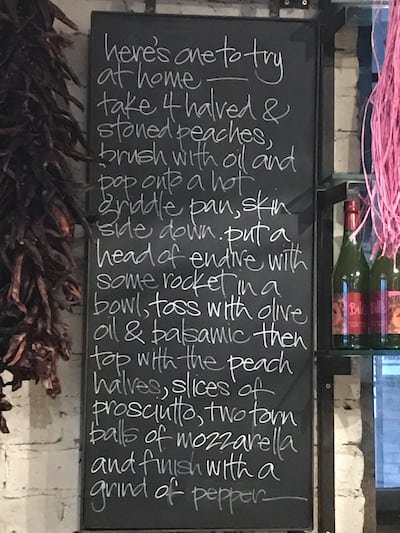 here's one to try
at home —
take 4 halved &
stoned peaches,
brush with oil and
pop onto a hot
griddle pan, skin
side down. put a
head of endive with
some rocket in a
bowl, toss with olive
oil & balsamic then
top with the peach
halves, slices of
prosciutto, two torn
balls of mozzarella
and finish with a
grind of pepper